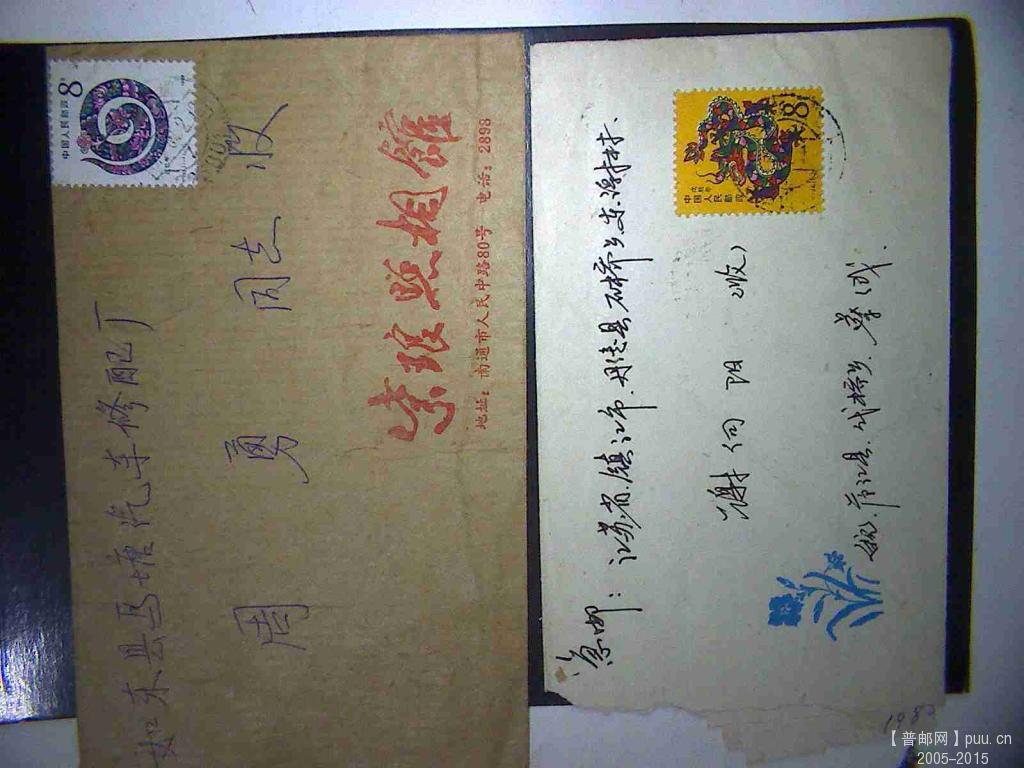 8
中国人民邮政
如东县马塘汽车修配厂
周勇同志收
紫琅照相馆
地址：南通市人民中路80号 电话：2898
8
戊辰年
中国人民邮政
江苏省.镇江市.丹徒县石桥乡.东谢村.
谢向阳 收
198
【普邮网】puu.cn
2005-2015